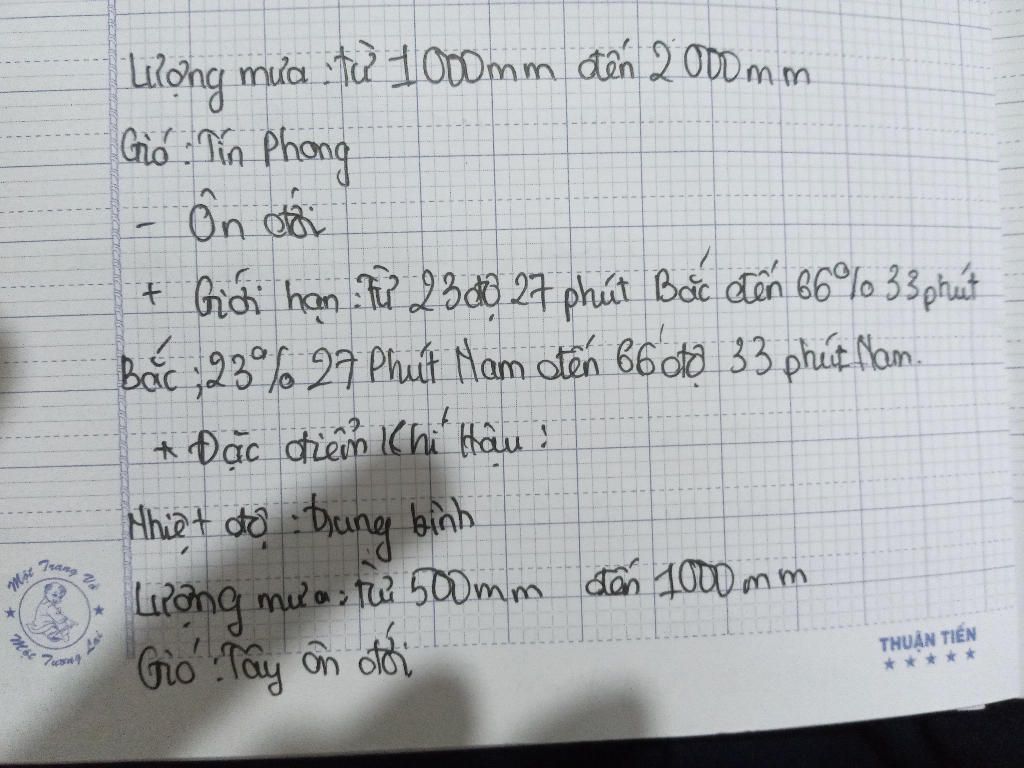 Lượng mưa : từ 1000mm đến 2000mm
Gió : Tín Phong
- Ôn đới
+ Giới hạn : Từ 23 độ 27 phút Bắc đến 66% 33 phút
Bắc ; 23% 27 Phút Nam đến 66 độ 33 phút Nam.
+ Đặc điểm Khí Hậu :
Nhiệt độ : trung bình
Lượng mưa : từ 500mm đến 1000mm
Một Trang Vở
Mộc Tương Lai
THUẬN TIẾN
Gió : Tây ôn đới